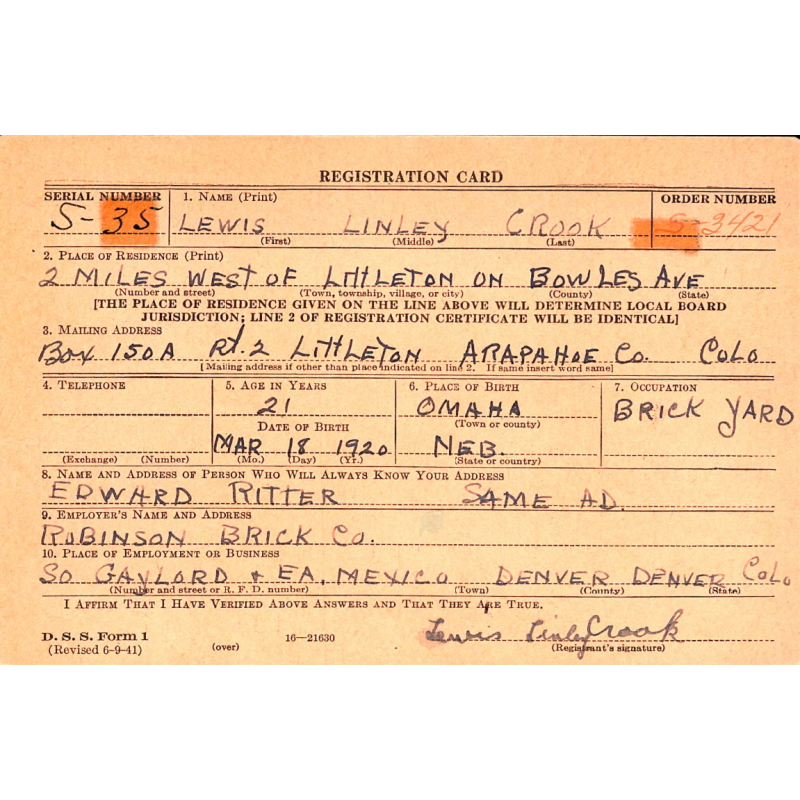 REGISTRATION CARD
SERIAL NUMBER 1. NAME (Print) ORDER NUMBER
S- 35 LEWIS LINLEY CROOK S-3421
(First) (Middle) (Last)
2. PLACE OF RESIDENCE (Print)
2 MILES WEST OF LITTLETON ON BOWLES AVE
(Number and street) (Town, township, village, or city) (County) (State)
[THE PLACE OF RESIDENCE GIVEN ON THE LINE ABOVE WILL DETERMINE LOCAL BOARD
JURISDICTION; LINE 2 OF REGISTRATION CERTIFICATE WILL BE IDENTICAL]
3. MAILING ADDRESS
BOX 150A Rt. 2 LITTLETON ARAPAHOE Co. COLO
[Mailing address if other than place indicated on line 2. If same insert word same]
4. TELEPHONE 5. AGE IN YEARS 6. PLACE OF BIRTH 7. OCCUPATION
21 OMAHA BRICK YARD
DATE OF BIRTH (Town or county)
MAR 18 1920 NEB.
(Exchange) (Number) (Mo.) (Day) (Yr.) (State or country)
8. NAME AND ADDRESS OF PERSON WHO WILL ALWAYS KNOW YOUR ADDRESS
EDWARD RITTER SAME AD.
9. EMPLOYER'S NAME AND ADDRESS
ROBINSON BRICK Co.
10. PLACE OF EMPLOYMENT OR BUSINESS
SO GAYLORD + EA. MEXICO DENVER DENVER COLO
(Number and street or R. F. D. number) (Town) (County) (State)
I AFFIRM THAT I HAVE VERIFIED ABOVE ANSWERS AND THAT THEY ARE TRUE.
Lewis Linley Crook
D. S. S. Form 1 16—21630
(Revised 6-9-41) (over) (Registrant's signature)